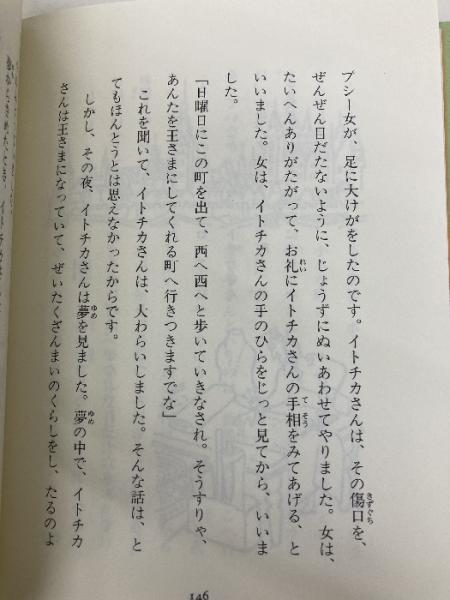 プシー女が、足に大けがをしたのです。イトチカさんは、その傷口を、
ぜんぜん目だたないように、じょうずにぬいあわせてやりました。女は、
たいへんありがたがって、お礼にイトチカさんの手相をみてあげる、と
いいました。女は、イトチカさんの手のひらをじっと見てから、いいま
した。
「日曜日にこの町を出て、西へ西へと歩いていきなされ。そうすりゃ、
あんたを王さまにしてくれる町へ行きつきますでな」
これを聞いて、イトチカさんは、大わらいしました。そんな話は、と
てもほんとうとは思えなかったからです。
しかし、その夜、イトチカさんは夢を見ました。夢の中で、イトチカ
さんは王さまになっていて、ぜいたくざんまいのくらしをし、たるのよ
146